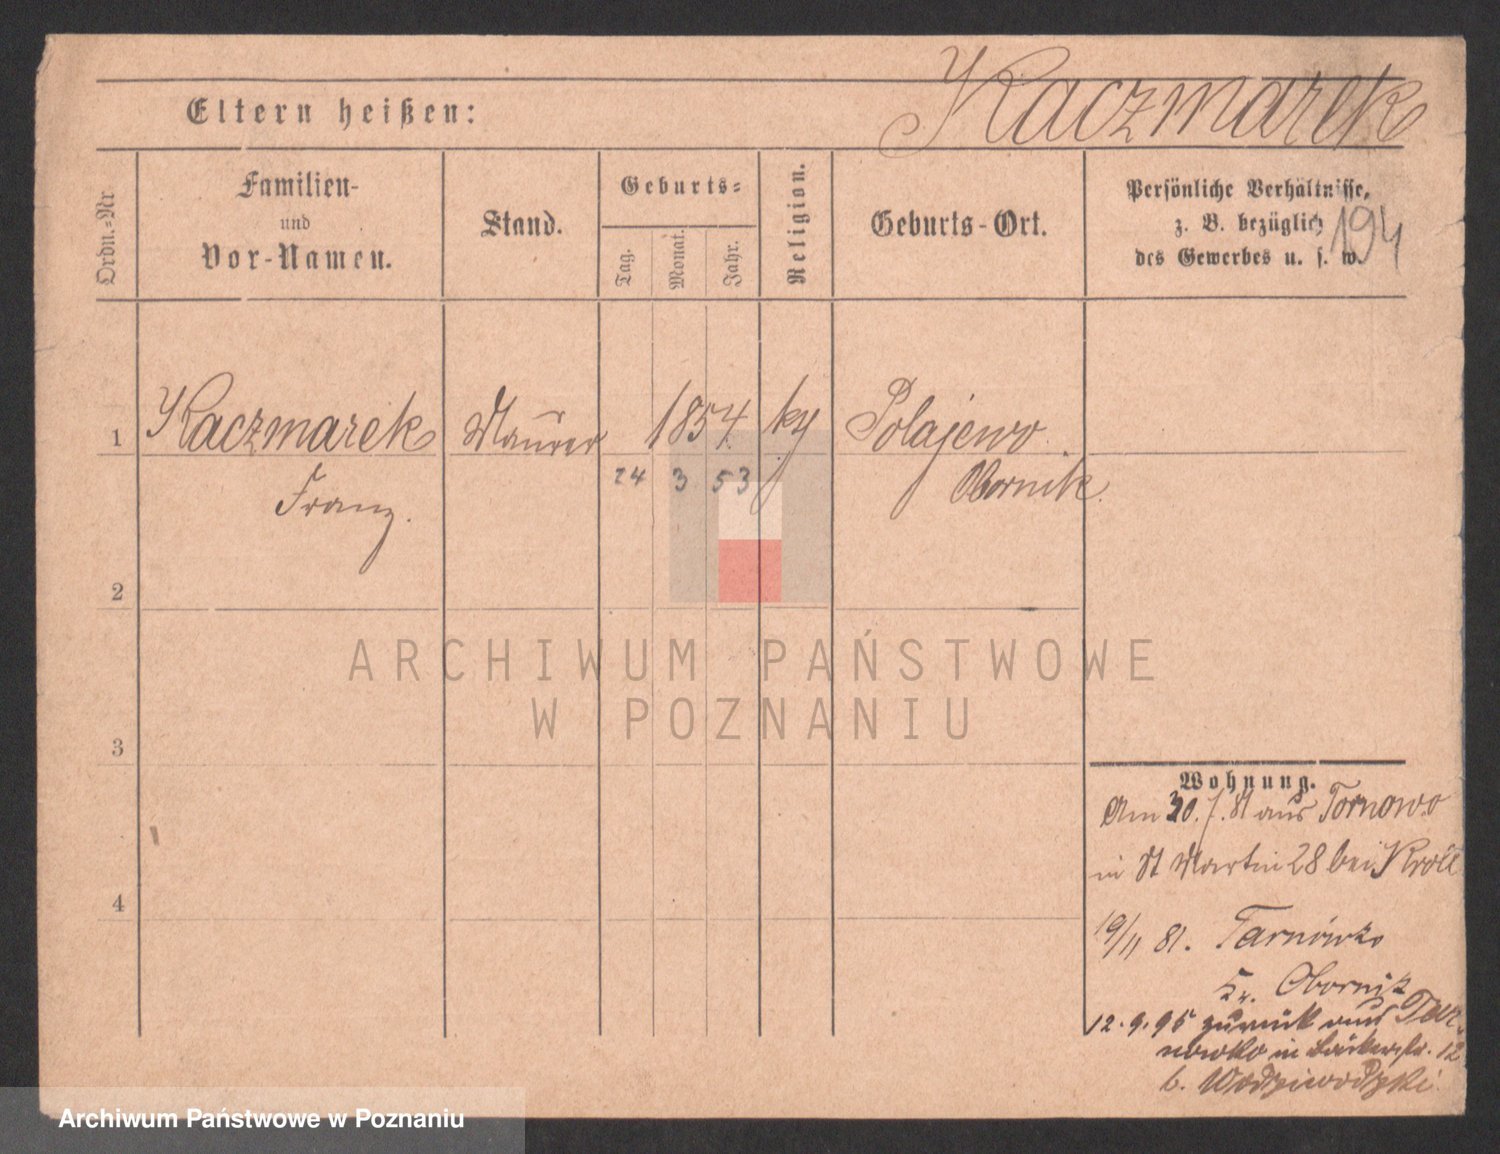 Kaczmarek
Eltern heißen:
Ordn.-Nr.
Familien-
und
Vor-Namen.
Stand.
Geburts-
Tag.
Monat.
Jahr.
Religion.
Geburts-Ort.
Persönliche Verhältnisse,
z. B. bezüglich
des Gewerbes u. s. w.
194
1
Kaczmarek
Franz.
Maurer
1854
24 3 53
Polajewo
Obornik.
2
3
4
ARCHIWUM PAŃSTWOWE
W POZNANIU
Wohnung.
Am 30.7.81 aus Tornowo
in St Martin 28 bei Kroll
19/11 81. Tarnówko
Kr. Obornik
12.9.95 zurück aus Tar-
nowko in Bäckerstr. 12
b.
Archiwum Państwowe w Poznaniu